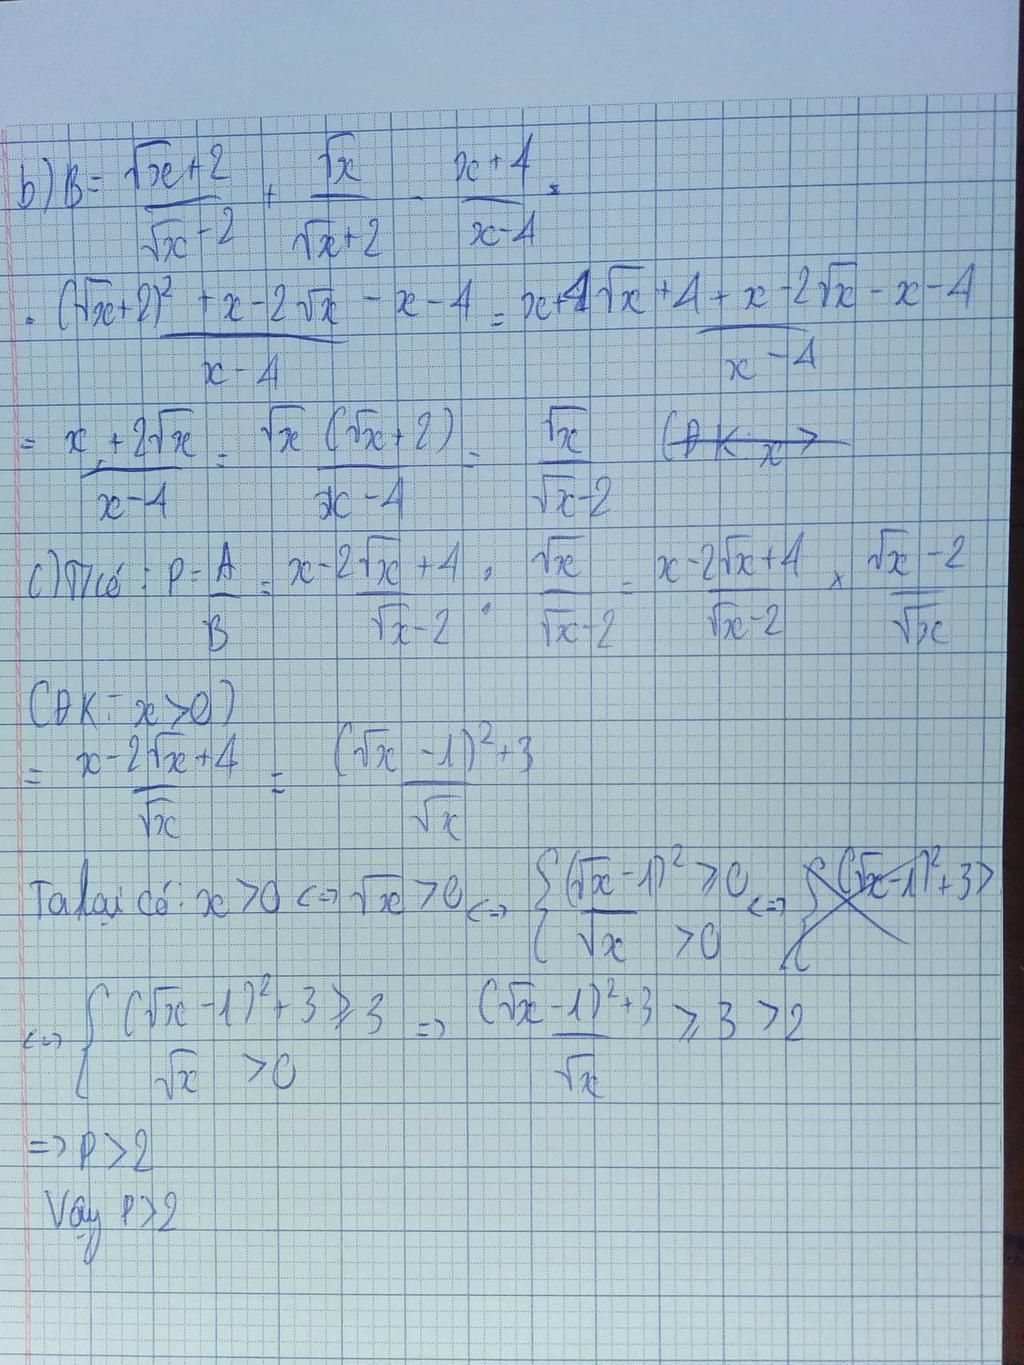 b) B = (√x+2)/(√x-2) + √x/(√x+2) - (x+4)/(x-4) =
= ((√x+2)² + x-2√x - x - 4)/(x-4) = (x+4√x+4+x-2√x-x-4)/(x-4)
= (x+2√x)/(x-4) = (√x(√x+2))/(x-4) = √x/(√x-2)
c) có: P = A/B = (x-2√x+4)/(√x-2) : √x/(√x-2) = (x-2√x+4)/(√x-2) × (√x-2)/√x
(ĐK: x>0)
= (x-2√x+4)/√x = ((√x-1)²+3)/√x
Ta lại có: x>0 <=> √x>0 <=> { (√x-1)² ≥ 0 ; √x > 0 <=>
<=> { (√x-1)²+3 ≥ 3 ; √x > 0 => ((√x-1)²+3)/√x ≥ 3 > 2
=> P>2
Vậy P>2